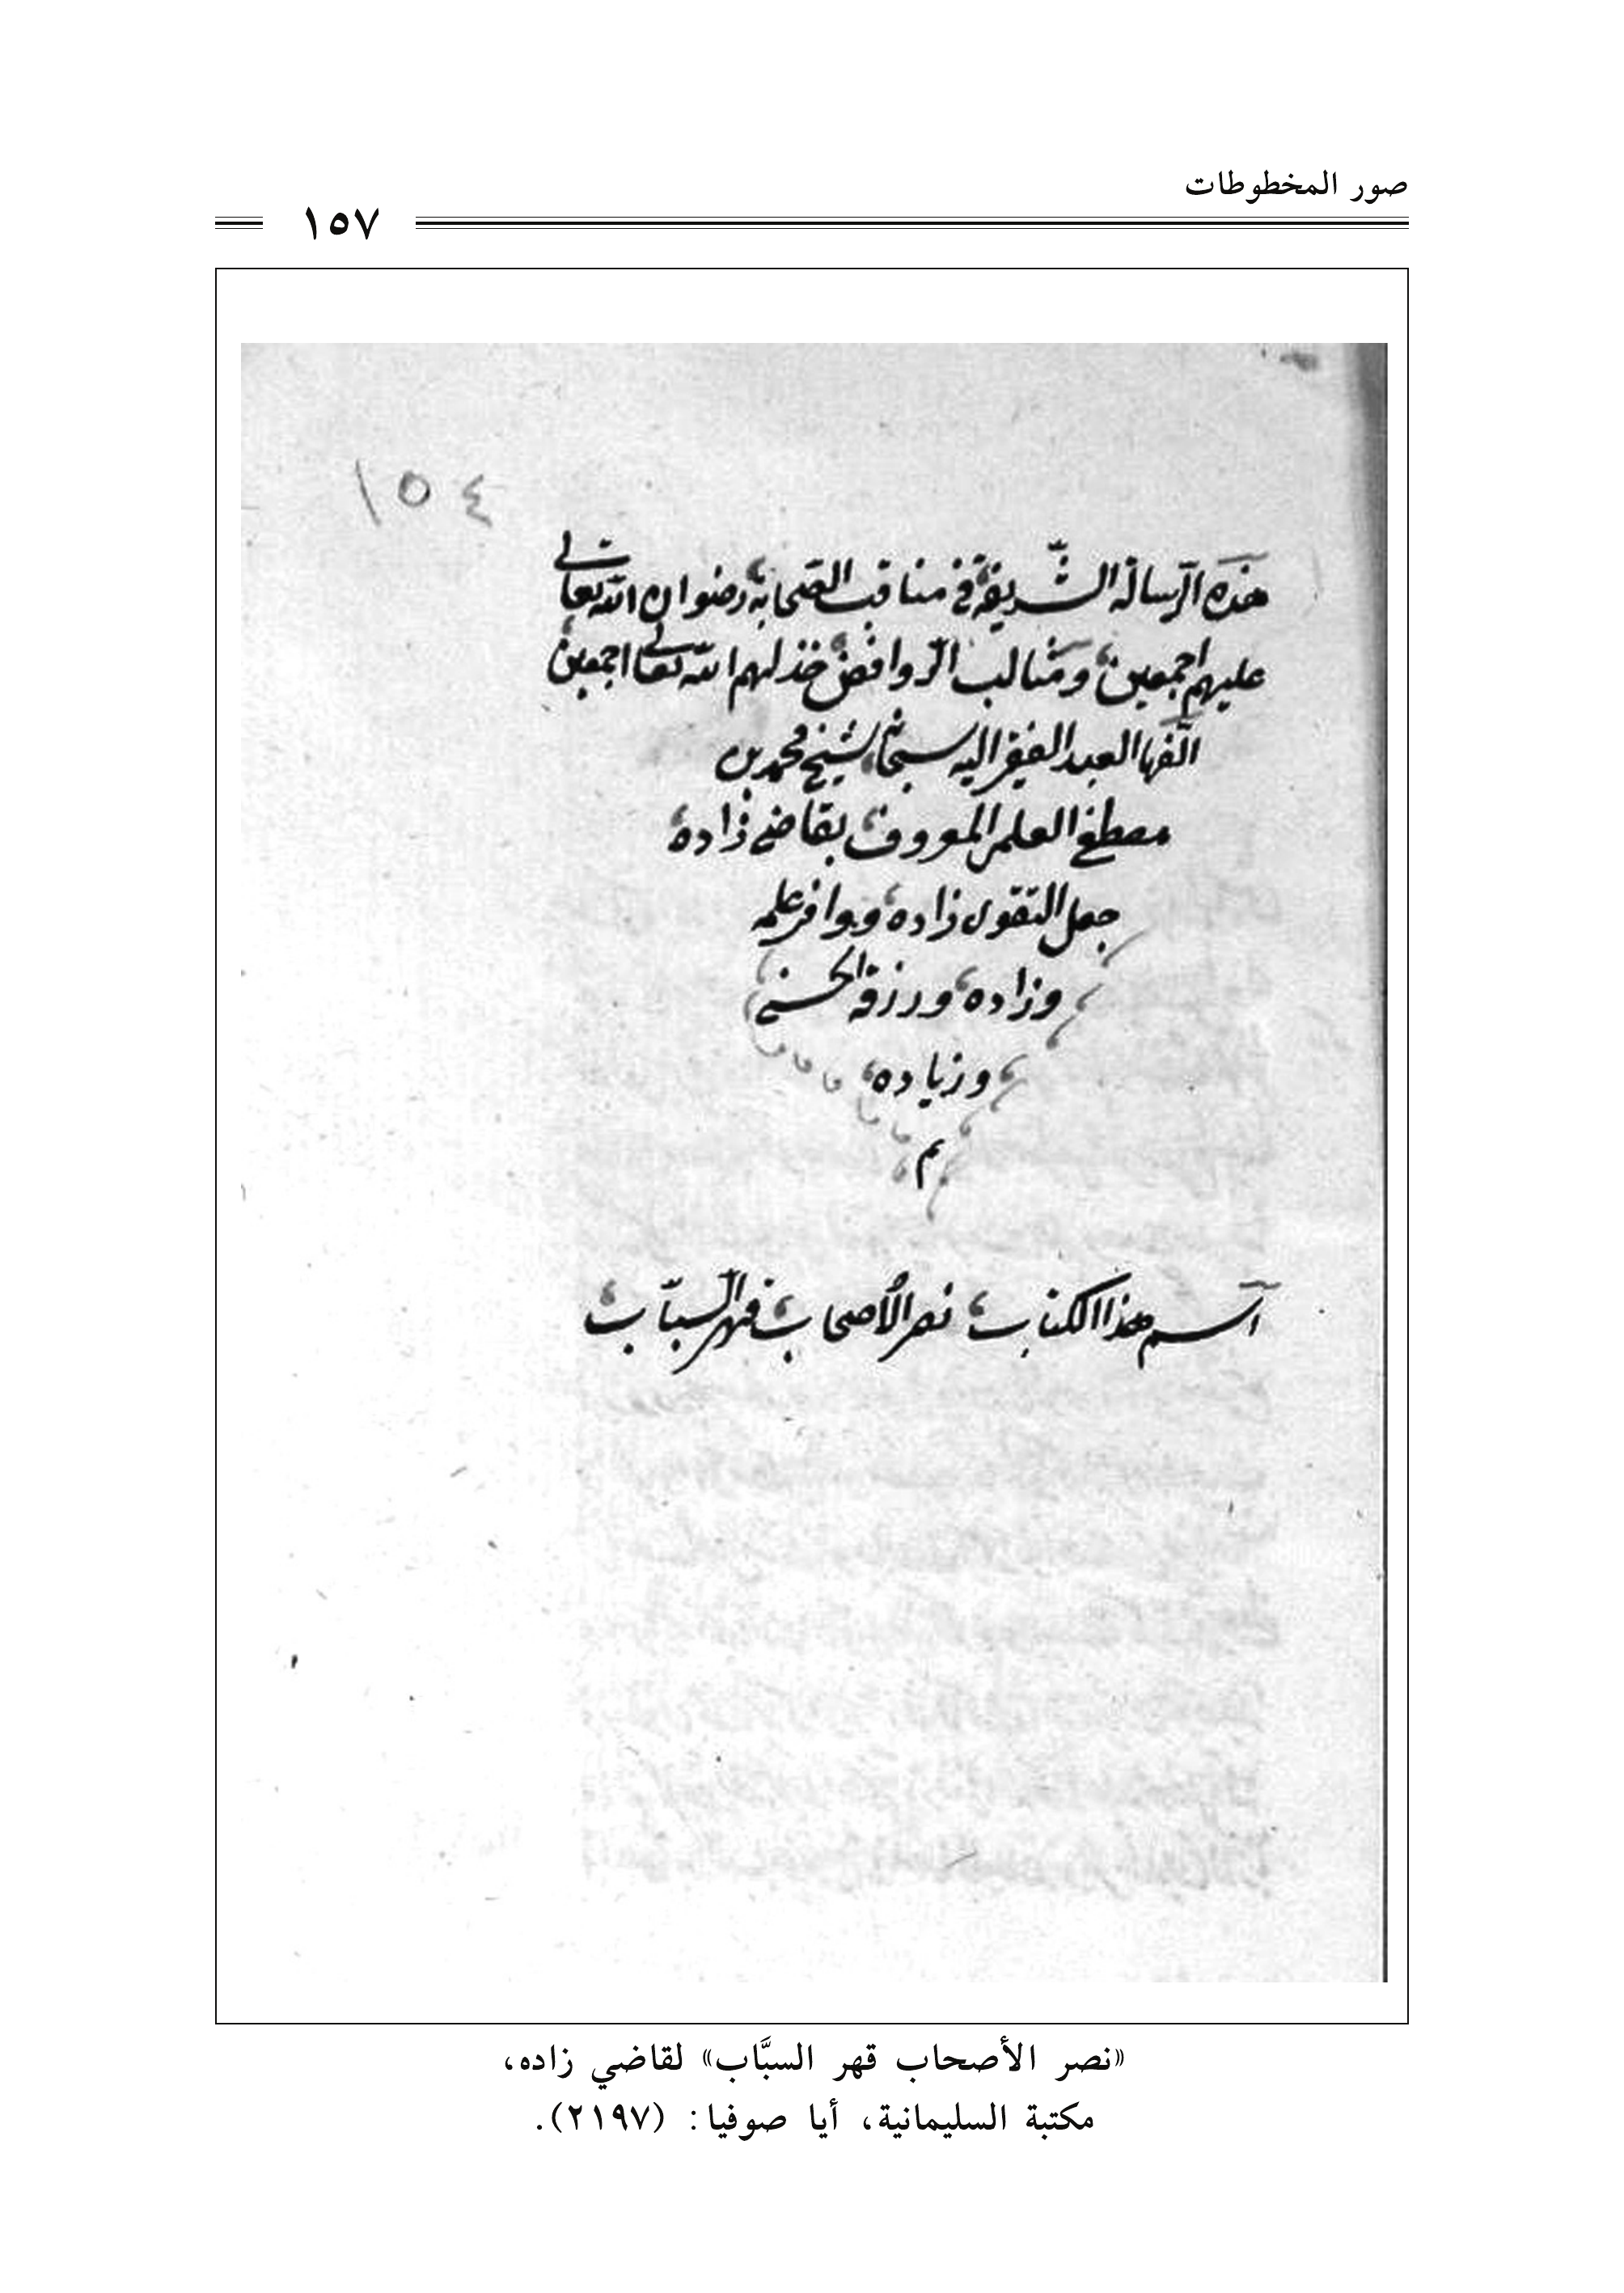 صور المخطوطات
١٥٧
١٥٤
هذه الرسالة الشريفة في مناقب الصحابة رضوان الله تعالى
عليهم اجمعين ومثالب الروافض خذلهم الله تعالى اجمعين
الفها العبد الفقير اليه سبحانه شيخ محمد بن
مصطفى العلمي المعروف بقاضي زاده
جعل التقوى زاده وبوافر علمه
وزاده ورزقه الحسنى
وزياده
م
اسم هذا الكتاب نصر الأصحاب قهر السبّاب
«نصر الأصحاب قهر السبَّاب» لقاضي زاده،
مكتبة السليمانية، أيا صوفيا: (٢١٩٧).